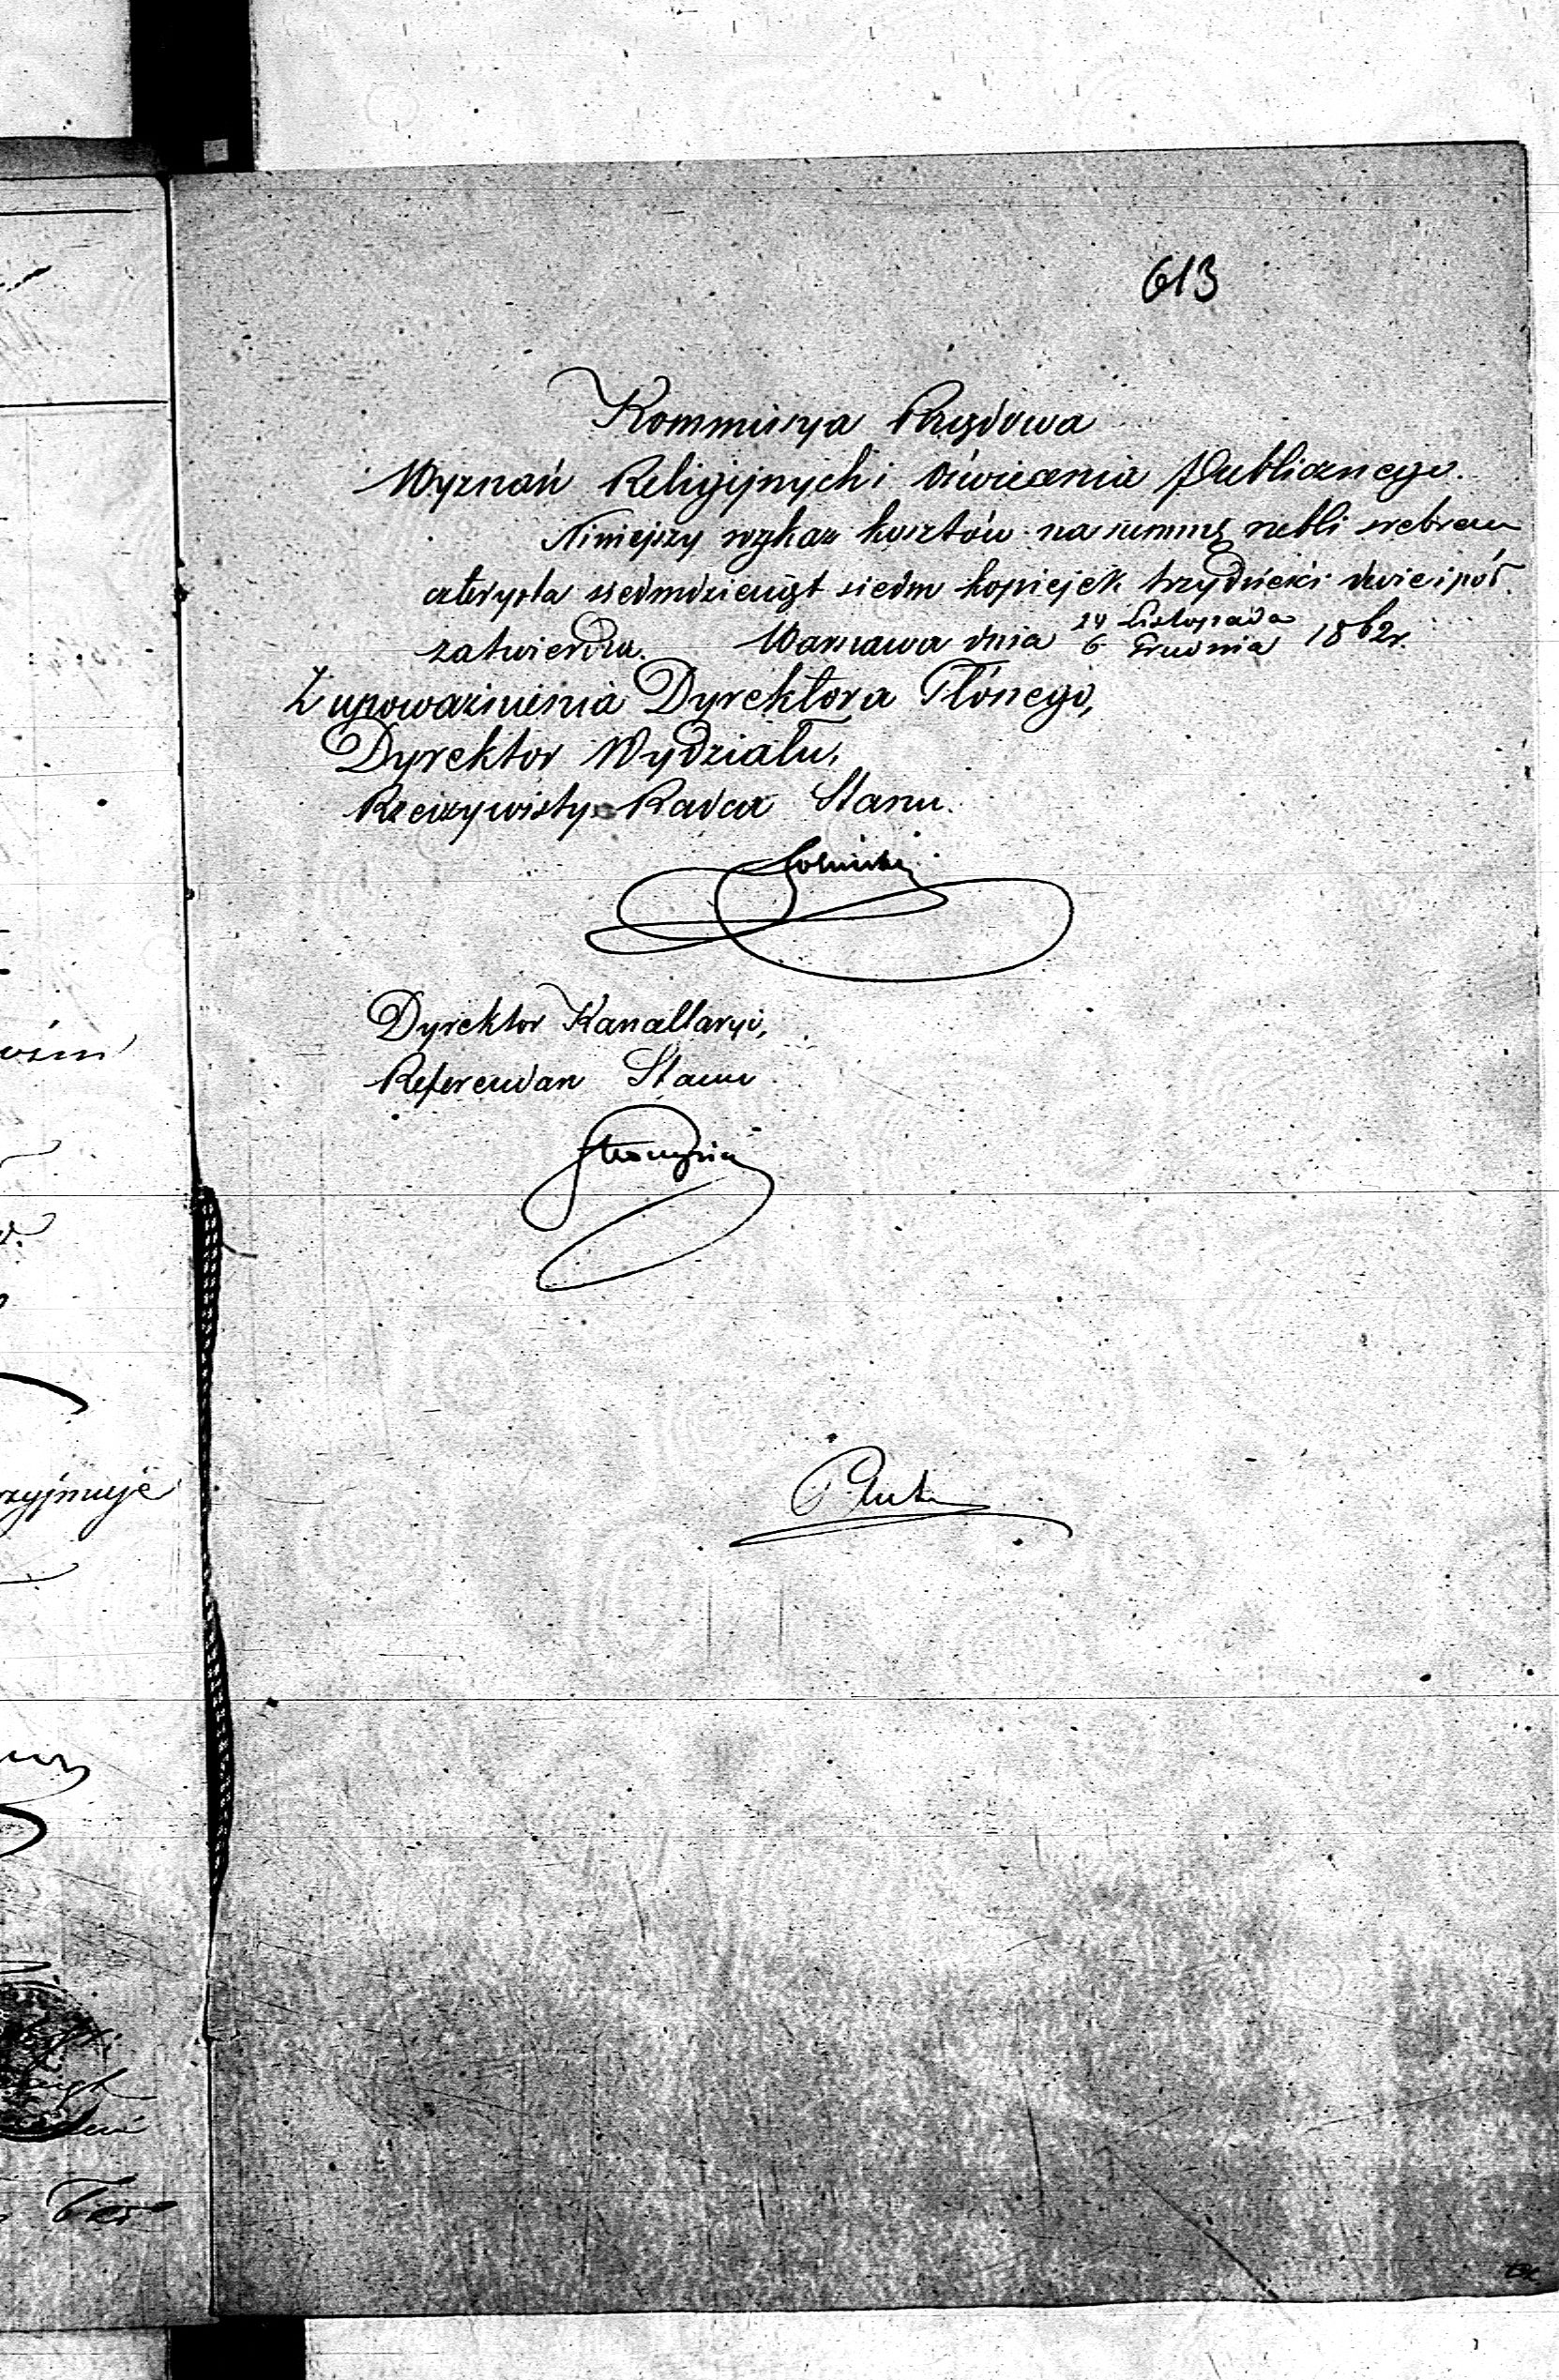 613
Kommissya Rządowa
Wyznań Religijnych i Oświecenia Publicznego.
Niniejszy wykaz kosztów na summę rubli srebrem
czterysta siedmdziesiąt siedm kopiejek trzydzieści dwie i pół.
zatwierdza. Warszawa dnia 24 Listopada / 6 Grudnia 1862 r.
Z upoważnienia Dyrektora Głónego,
Dyrektor Wydziału,
Rzeczywisty Radca Stanu.
Dyrektor Kancellaryi,
Referendarz Stanu
rzyjmuje